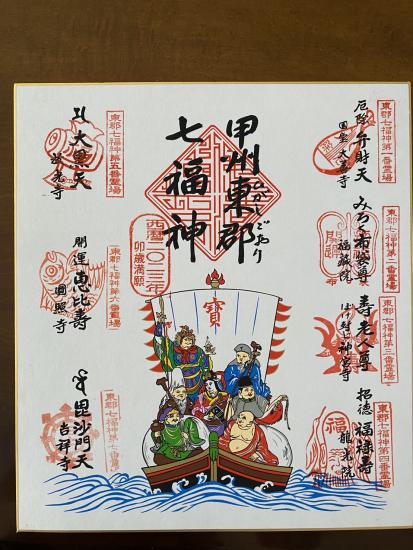 甲州東郡
ひがしごおり
七福神
西暦二〇二三年
卯歳満願
寶
東郡七福神第一番霊場
厄除 弁財天
東郡七福神第二番霊場
みろく布袋尊
福蔵院
東郡七福神第三番霊場
寿老人尊
神宮寺
東郡七福神第四番霊場
招徳 福禄寿
福
東郡七福神第五番霊場
大黒天
東郡七福神第六番霊場
開運 恵比寿
圓照寺
毘沙門天
吉祥寺